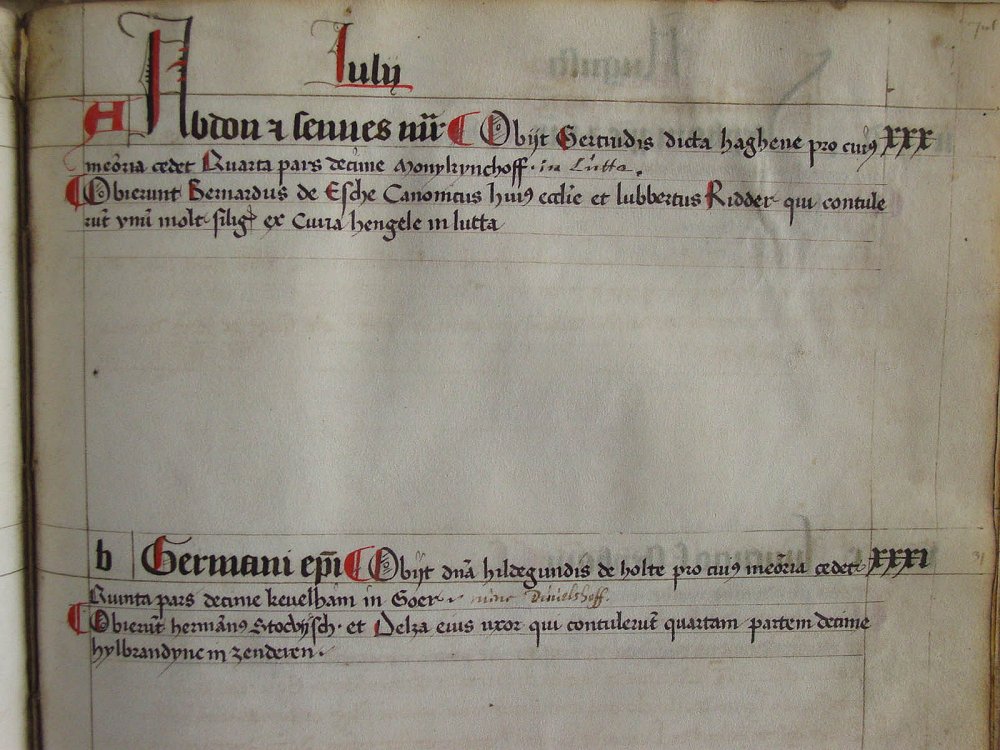 Iulij
A Abdon z sennes mr̄. Obijt Gertrudis dicta haghene pro cuiꝰ XXX
meōria cedet Quarta pars decime Monykynchoff. in Lutta.
Obierunt Bernardus de Esche Canonicus huiꝰ ecclīe et lubbertus Ridder qui contule
rūt vnū molt siligꝭ ex Curia hengele in lutta
b Germani ep̄i Obijt dn̄a hildegundis de holte pro cuiꝰ meōria cedet XXXI
Quinta pars decime keuelham in Goer. nunc Dinielshoff.
Obierūt hermānꝰ Stocvijsch. et Delza eius uxor qui contulerūt quartam partem decime
hylbrandync in zenderen.